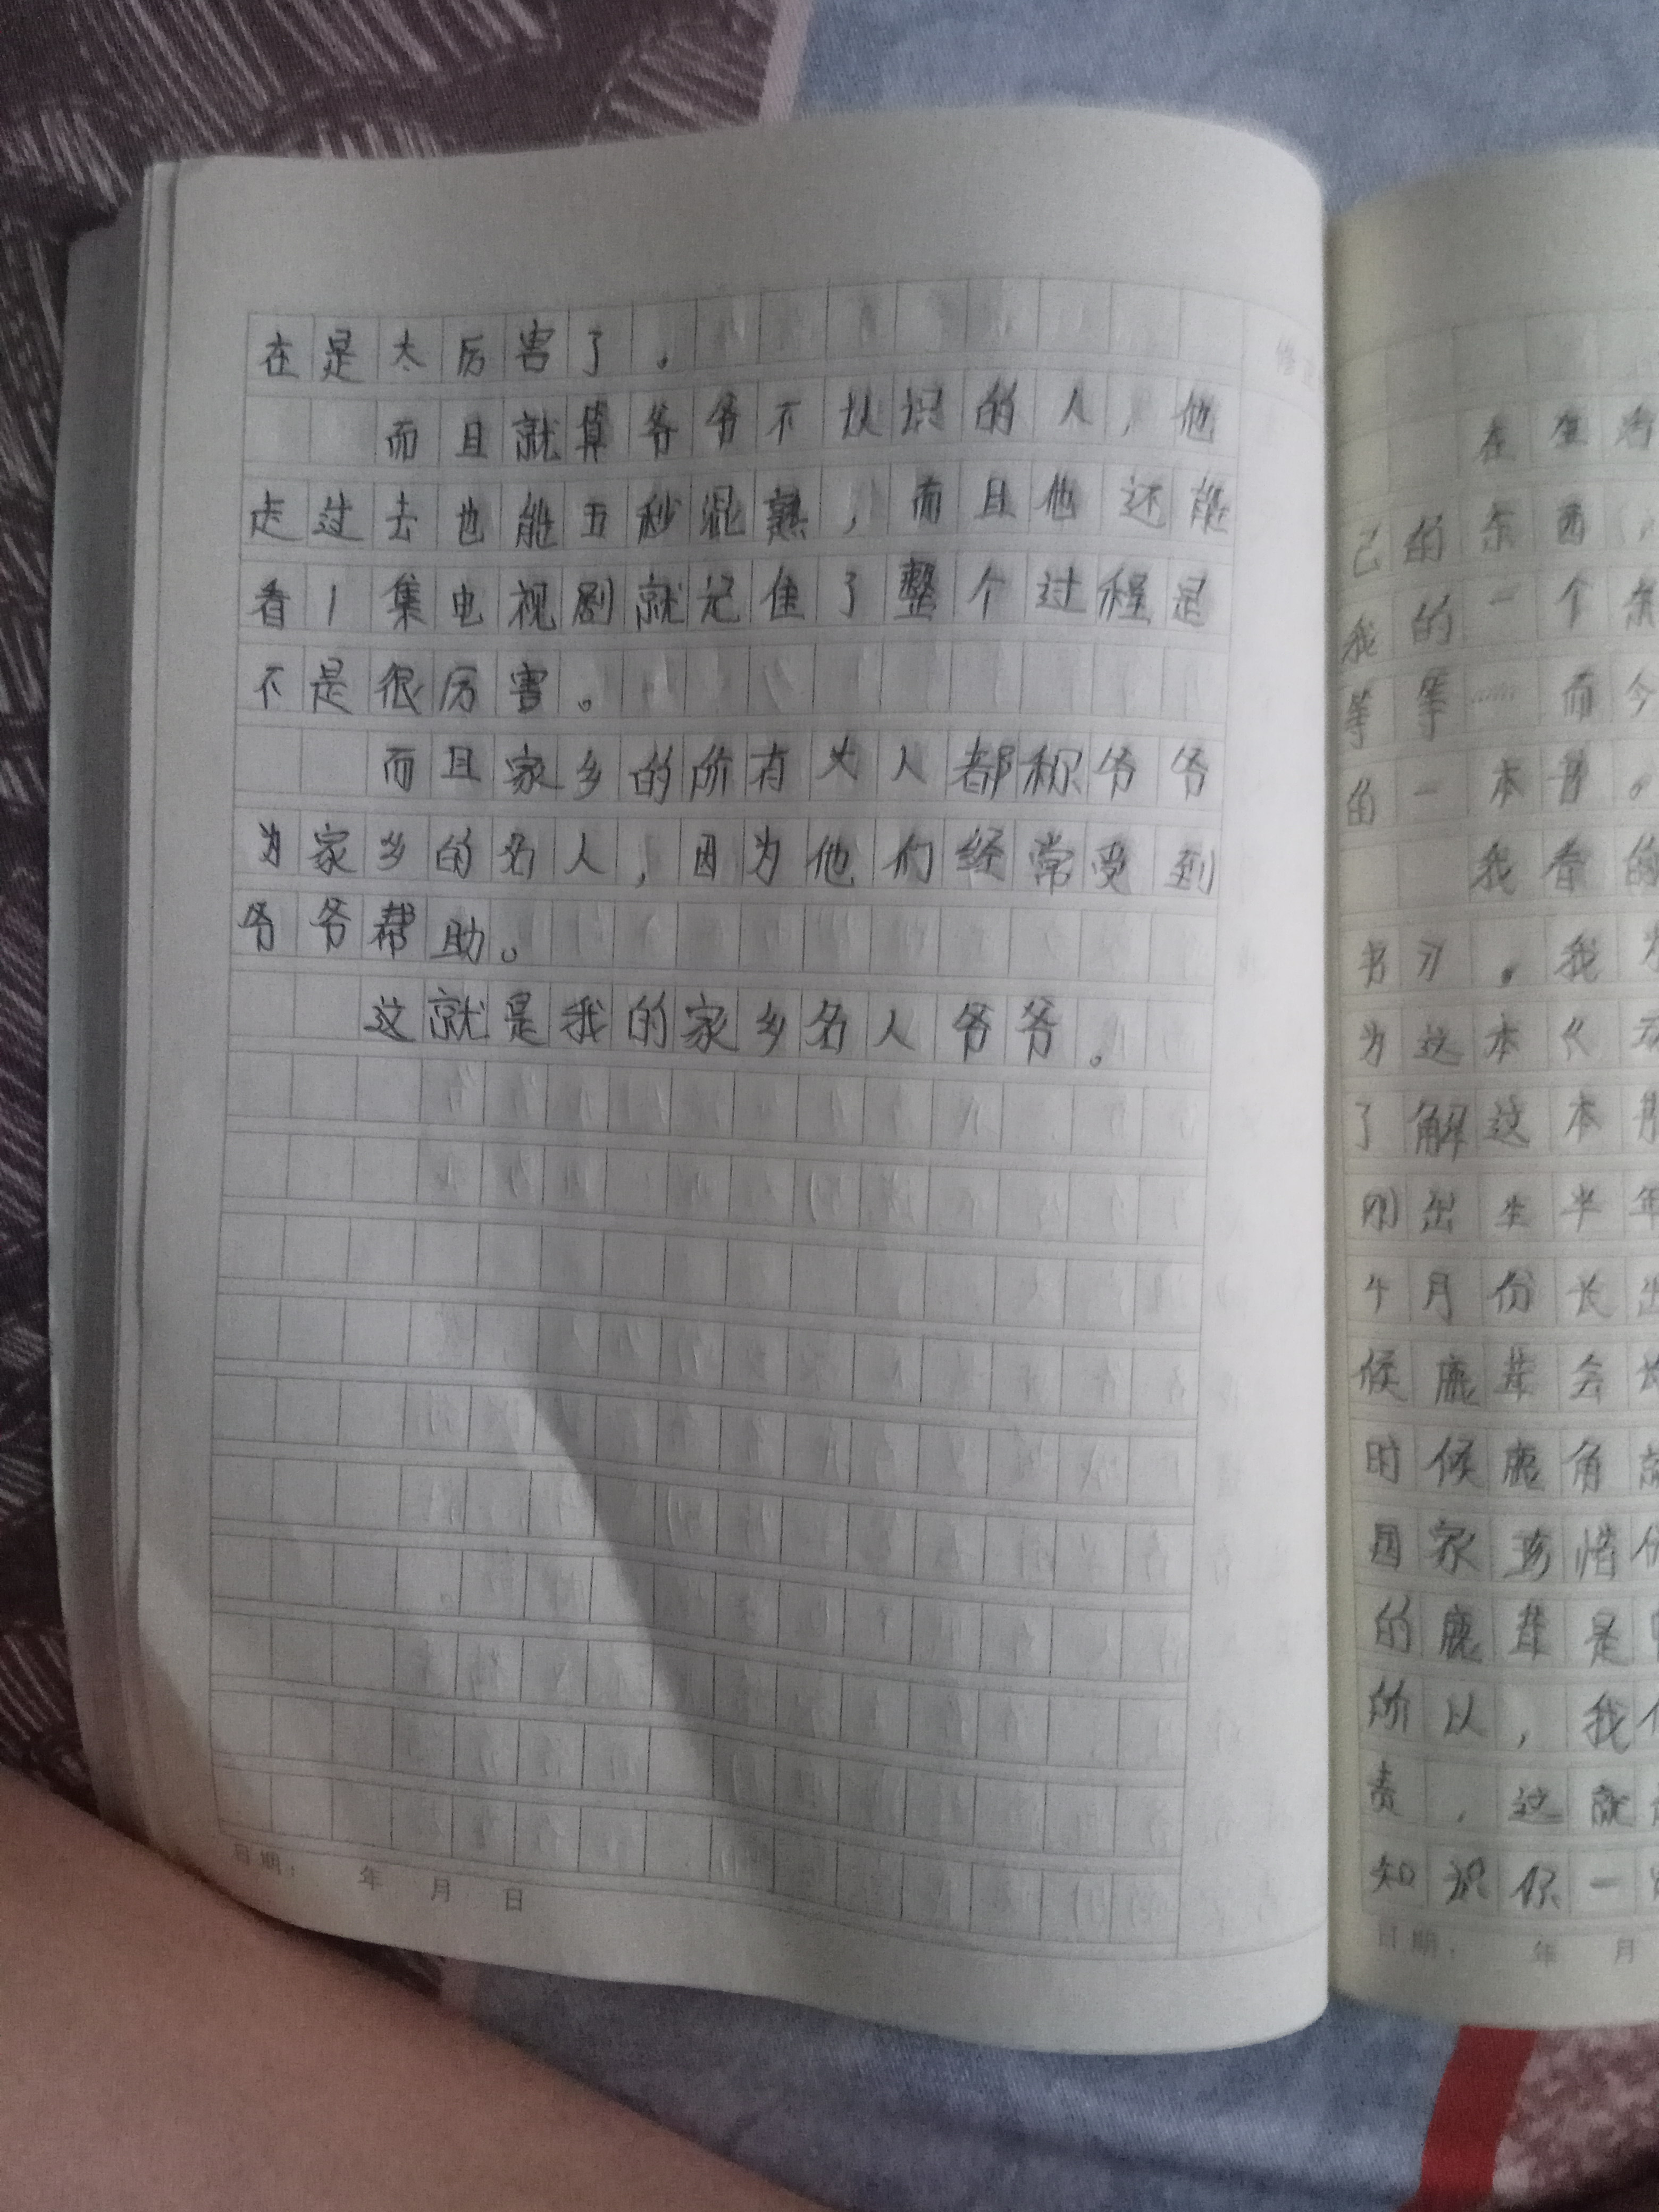 在是太厉害了。
而且就算爷爷不认识的人，他
走过去也能五秒混熟，而且他还能
看1集电视剧就记住了整个过程是
不是很厉害。
而且家乡的所有大人都称爷爷
为家乡的名人，因为他们经常受到
爷爷帮助。
这就是我的家乡名人爷爷。
日期： 年 月 日
在生活
己的东西，
我的一个东
等等……而今
的一本书。
我看的
书》。我为
为这本《
了解这本
刚出生半年
个月份长出
候鹿茸会长
时候鹿角就
国家珍惜
的鹿茸是
所以，我们
责，这就
知识你一
日期： 年 月